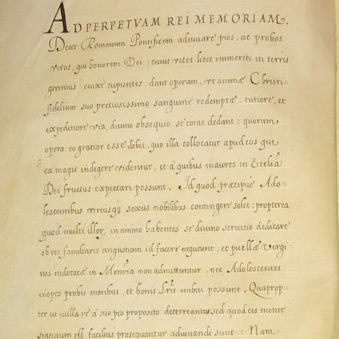 AD PERPETVAM REI MEMORIAM.
Decet Romanum Pontificem adiuuare pios, ac probos
viros, qui honorem Dei, cuius vices licet immeriti in terris
gerimus cupientes, dant operam, ut animæ Christi
fidelium suo pretiosissimo sanguine redemptæ, tutiore, et
expeditiore via, diuino obsequio se totas dedant: quorum
opera eo gratior esse debet, quo illa collocatur apud eos qui
ea magis indigere videntur, et à quibus maiores in Ecclesia
Dei fructus expectari possunt. Id quod præcipuè Ado-
lescentibus vtriusq3 sexus nobilibus contingere solet: propterea
quod multi illor, in animo habentes se diuino seruitio dedicare
ob rei familiaris angustiam id facere nequeunt, et puellæ Virgi-
nes indotatæ in Mon.ria non admittuntur, nec Adolescentes
inopes probis moribus, et bonis imbui possunt. Quaprop-
ter, ut nulla re à suo pio proposito deterreantur, sed quod eis monte
statutum est facilius prosequantur adiuuandi sunt: Nam